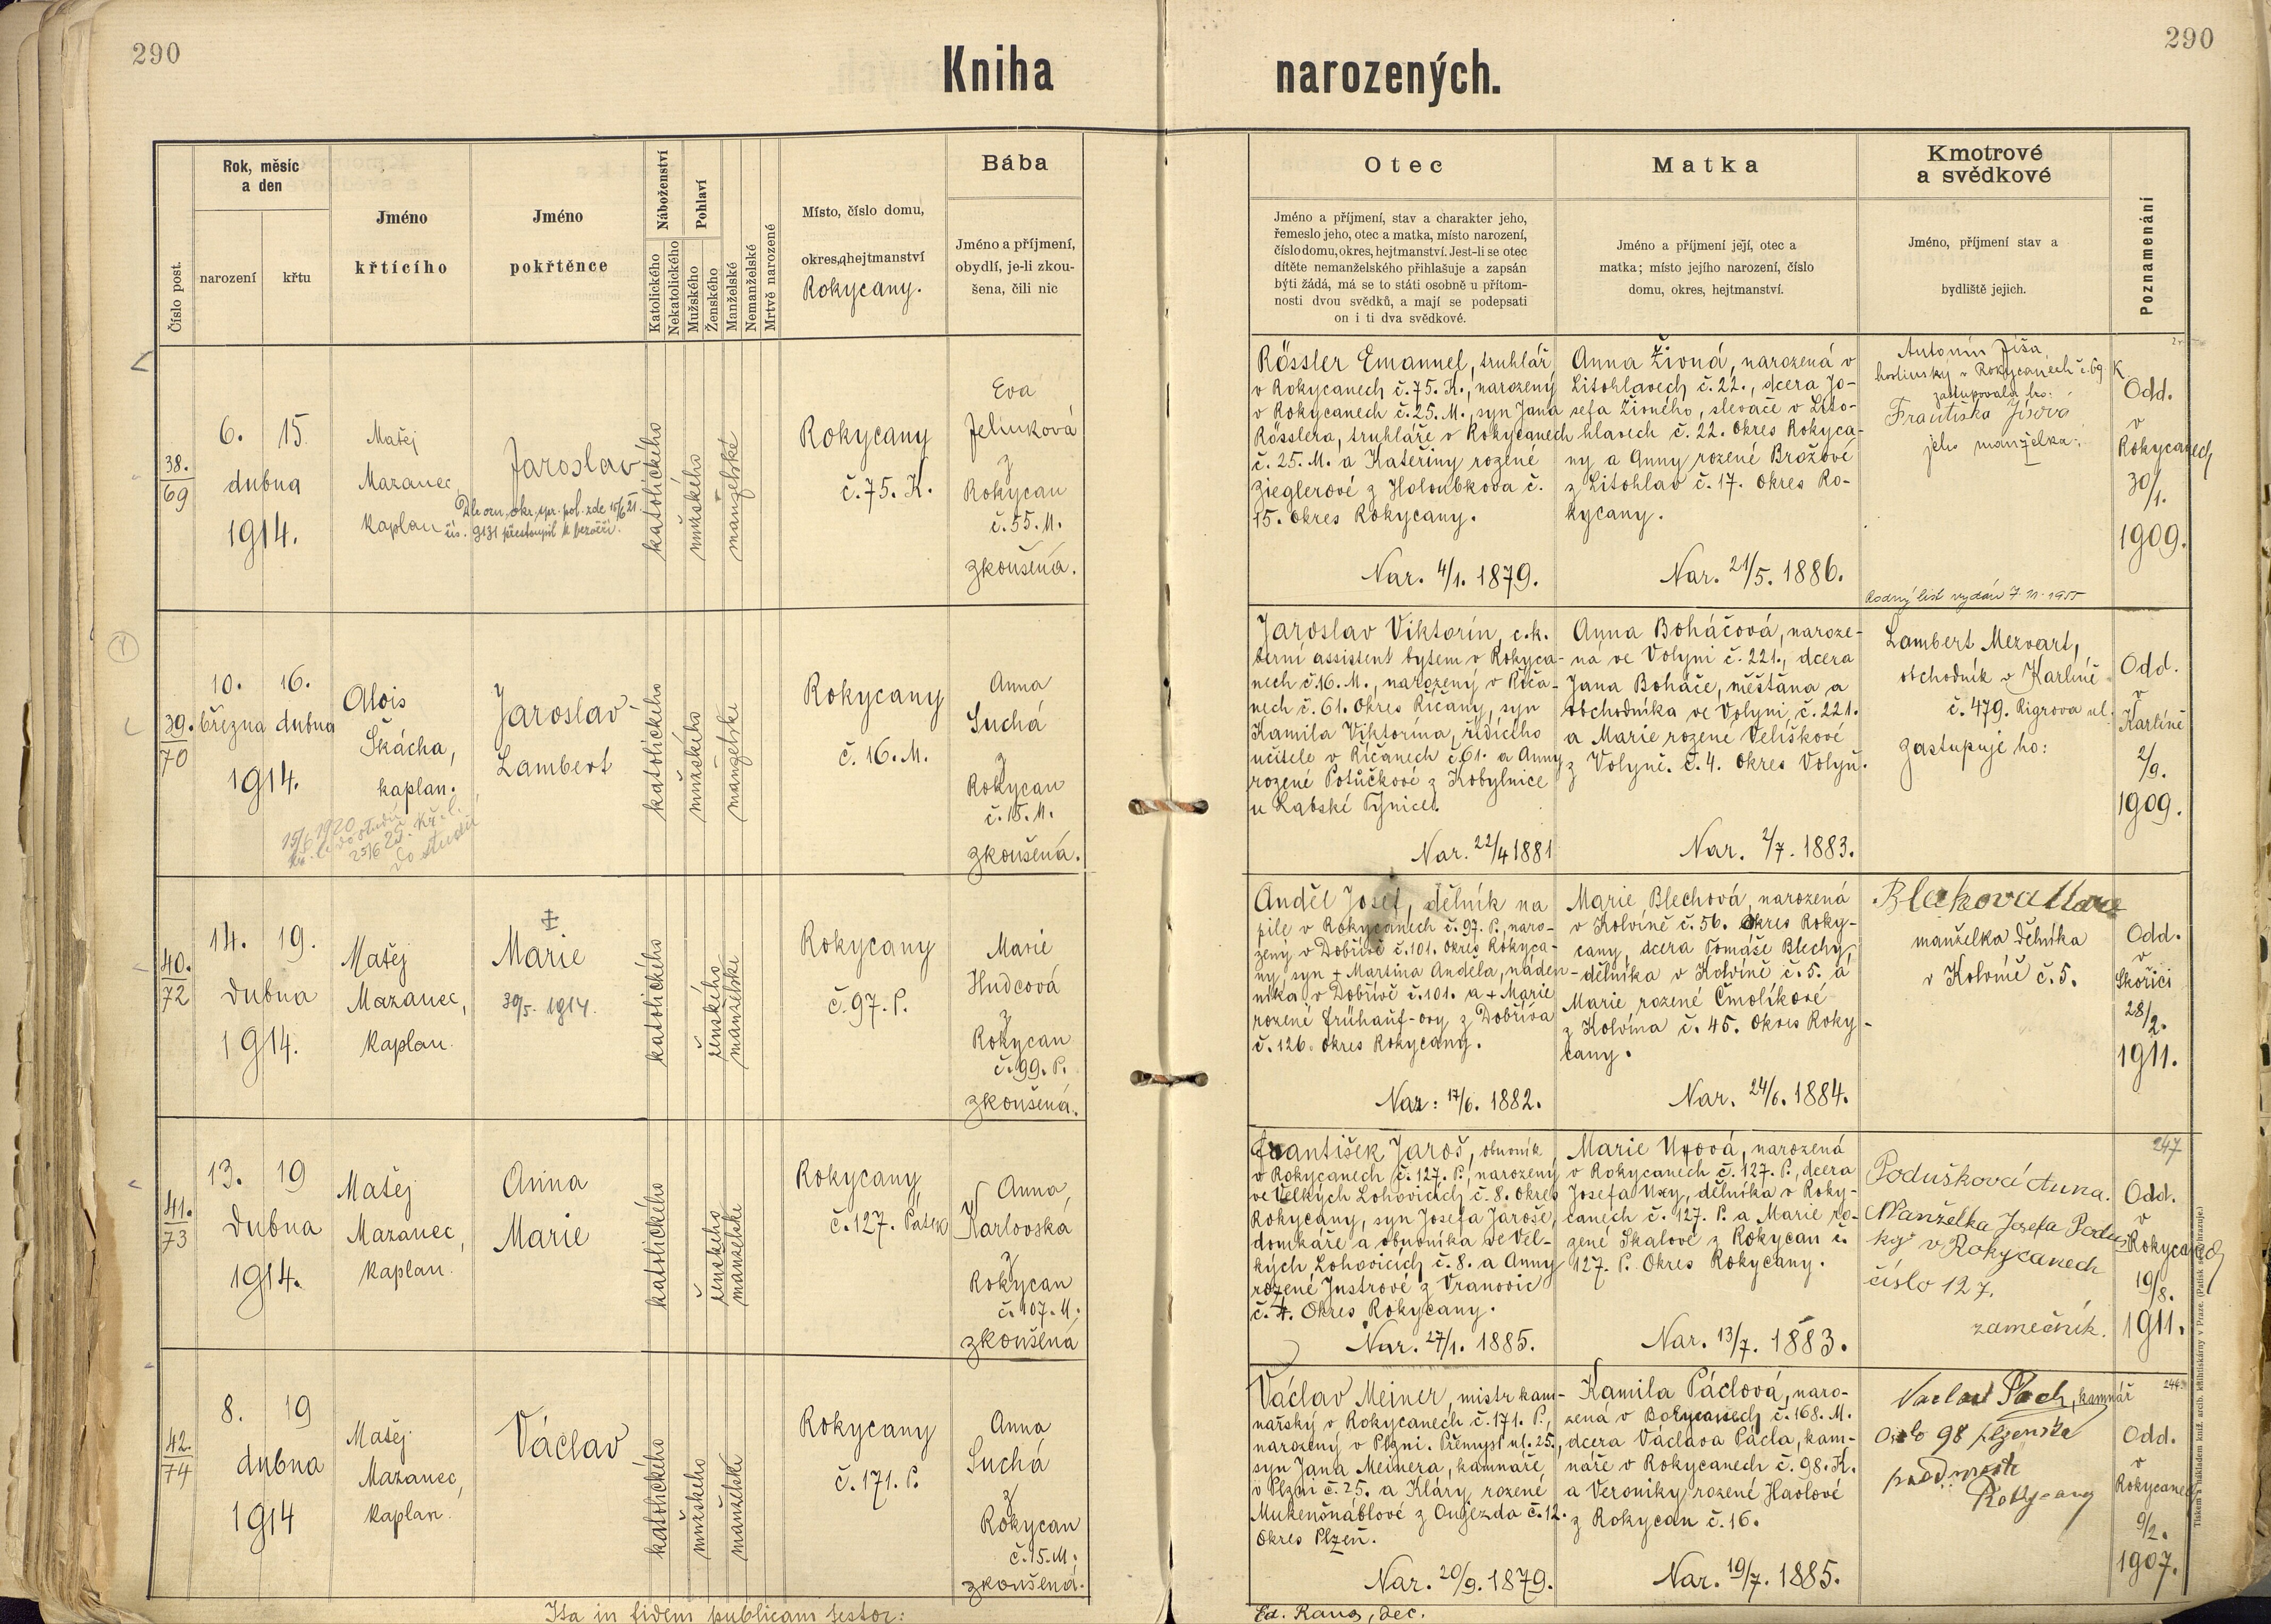 290
290
Kniha narozených.
Číslo post.
Rok, měsíc
a den
narození
křtu
Jméno
křtícího
Jméno
pokřtěnce
Náboženství
Katolického
Nekatolického
Pohlaví
Mužského
Ženského
Manželské
Nemanželské
Mrtvě narozené
Místo, číslo domu,
okres, hejtmanství
Rokycany.
Bába
Jméno a příjmení,
obydlí, je-li zkou-
šena, čili nic
Otec
Jméno a příjmení, stav a charakter jeho,
řemeslo jeho, otec a matka, místo narození,
číslo domu, okres, hejtmanství. Jest-li se otec
dítěte nemanželského přihlašuje a zapsán
býti žádá, má se to státi osobně u přítom-
nosti dvou svědků, a mají se podepsati
on i ti dva svědkové.
Matka
Jméno a příjmení její, otec a
matka; místo jejího narození, číslo
domu, okres, hejtmanství.
Kmotrové
a svědkové
Jméno, příjmení stav a
bydliště jejich.
Poznamenání
38.
69
6. 15.
dubna
1914.
Matěj
Mazanec,
kaplan
Jaroslav
Dle ozn. okr. spr. pol. zde 15/6 21.
čís. 9131 přestoupil k bezvěří.
katolického
mužského
manželské
Rokycany
č. 75. K.
Eva
Jelínková
z
Rokycan
č. 55. M.
zkoušená.
Rössler Emanuel, truhlář
v Rokycanech č. 75. K., narozený
v Rokycanech č. 25. M., syn Jana
Rösslera, truhláře v Rokycanech
č. 25. M. a Kateřiny rozené
Zieglerové z Holoubkova č.
15. okres Rokycany.
Nar. 4/1. 1879.
Anna Živná, narozená v
Litohlavech č. 22., dcera Jo-
sefa Živného, slevače v Lito-
hlavech č. 22. okres Rokyca-
ny a Anny rozené Brožové
z Litohlav č. 17. okres Ro-
kycany.
Nar. 21/5. 1886.
Antonín Jíša,
hodinský v Rokycanech č. 69 K.
zastupovala ho:
Františka Jíšová
jeho manželka.
Rodný list vydán 7. 11. 1955
Odd.
v
Rokycanech
30/1.
1909.
39.
70
10. 16.
března dubna
1914.
Alois
Škácha,
kaplan.
15/6 1920
25/6 25. Kř. l.
do studií
Jaroslav
Lambert
katolického
mužského
manželské
Rokycany
č. 16. M.
Anna
Suchá
z
Rokycan
č. 15. M.
zkoušená.
Jaroslav Viktorín, c. k.
berní assistent bytem v Rokyca-
nech č. 16. M., narozený v Říča-
nech č. 61. okres Říčany, syn
Kamila Viktorína, řídícího
učitele v Říčanech č. 61. a Anny
rozené Potůčkové z Kobylnice
u Labské Týnice.
Nar. 22/4 1881
Anna Boháčová, naroze-
ná ve Volyni č. 221., dcera
Jana Boháče, měšťana a
obchodníka ve Volyni č. 221.
a Marie rozené Velíškové
z Volyně. č. 4. okres Volyň.
Nar. 2/7. 1883.
Lambert Mezvart,
obchodník v Karlíně
č. 479. Rigrova ul.
zastupuje ho:
Odd.
v
Karlíně
2/9.
1909.
40.
72
14. 19.
dubna
1914.
Matěj
Mazanec,
kaplan.
‡
Marie
30/5. 1914.
katolického
ženského
manželské
Rokycany
č. 97. P.
Marie
Hudcová
z
Rokycan
č. 99. P.
zkoušená.
Anděl Josef, dělník na
pile v Rokycanech č. 97. P., naro-
zený v Dobřívě č. 101. okres Rokyca-
ny, syn + Martina Anděla, náden-
níka v Dobřívě č. 101. a + Marie
rozené Frühauf-ovy z Dobříva
č. 126. okres Rokycany.
Nar: 17/6. 1882.
Marie Blechová, narozená
v Kolvíně č. 56. okres Roky-
cany, dcera Tomáše Blechy,
dělníka v Kolvíně č. 5. a
Marie rozené Čmolíkové
z Kolvína č. 45. okres Roky-
cany.
Nar. 24/6. 1884.
Blekova Mare
manželka dělníka
v Kolvíně č. 5.
Odd.
v
Skořici
28/2.
1911.
41.
73
13. 19
dubna
1914.
Matěj
Mazanec,
kaplan.
Anna
Marie
katolického
ženského
manželské
Rokycany
č. 127. Pátek
Anna
Karlovská
z
Rokycan
č. 107. M.
zkoušená
František Jaroš, obuvník
v Rokycanech č. 127. P., narozený
ve Velkých Lohovicích č. 8. okres
Rokycany, syn Josefa Jaroše,
domkáře a obuvníka ve Vel-
kých Lohovicích č. 8. a Anny
rozené Justrové z Vranovic
č. 4. Okres Rokycany.
Nar. 27/1. 1885.
Marie Uxová, narozená
v Rokycanech č. 127. P., dcera
Josefa Uxy, dělníka v Roky-
canech č. 127. P. a Marie ro-
zené Skalové z Rokycan č.
127. P. Okres Rokycany.
Nar. 13/7. 1883.
Podušková Anna.
Manželka Josefa Poduš
ky v Rokycanech
číslo 127.
zámečník.
247
Odd.
v
Rokycanech
19/8.
1911.
42.
74
8. 19
dubna
1914
Matěj
Mazanec,
kaplan.
Václav
katolického
mužského
manželské
Rokycany
č. 171. P.
Anna
Suchá
z
Rokycan
č. 15. M.
zkoušená.
Václav Meiner, mistr kam-
nařský v Rokycanech č. 171. P.,
narozený v Plzni. Přemysl ul. 25.,
syn Jana Meinera, kamnáře
v Plzni č. 25. a Kláry rozené
Mukenšnáblové z Oujezda č. 12.
Okres Plzeň.
Nar. 20/9. 1879.
Kamila Páclová, naro-
zená v Rokycanech č. 168. M.
dcera Václava Pácla, kam-
náře v Rokycanech č. 98. K.
a Veroniky rozené Havlové
z Rokycan č. 16.
Nar. 19/7. 1885.
Vaclav Pacl, kamnář
Cislo 98 plzenske
predmesti
Rokycany
Odd.
v
Rokycanech
9/2.
1907.
Ita in fidem publicam testor:
Ed. Raus, dec.
Tiskem a nákladem kníž. arcib. knihtiskárny v Praze. (Patisk se vyhrazuje.)